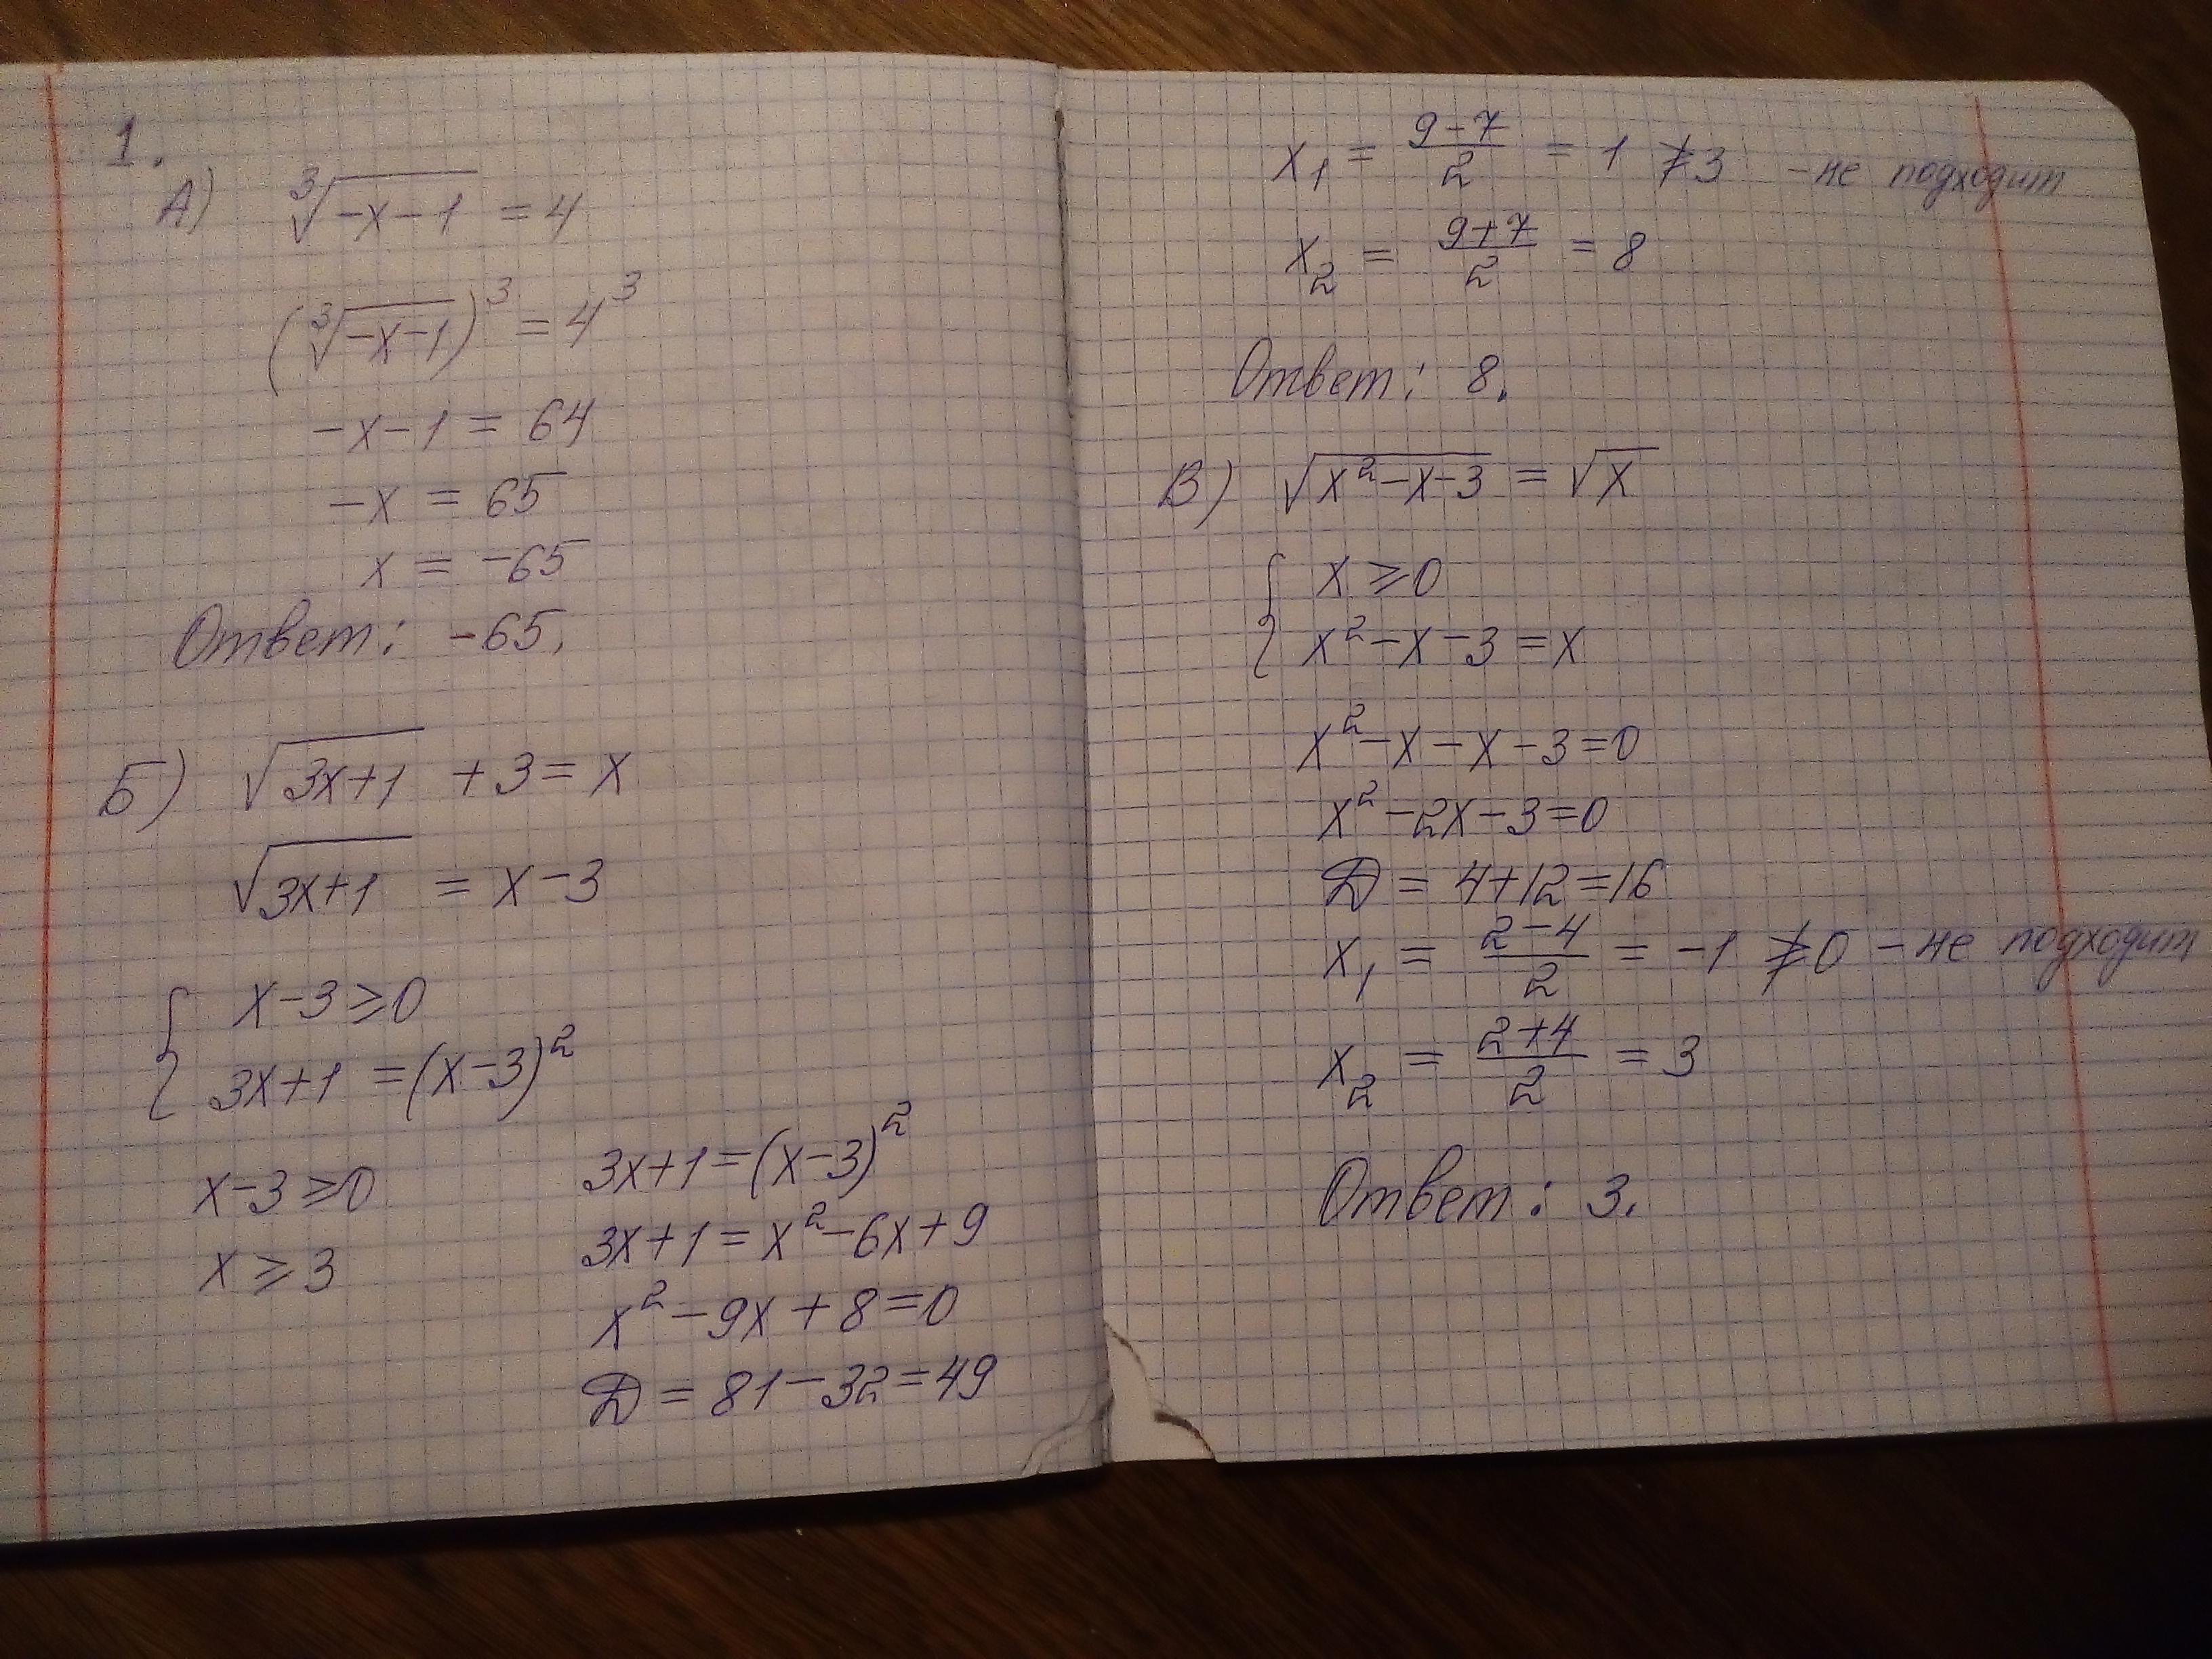 1.
А) ∛(-x-1) = 4
(∛(-x-1))³ = 4³
-x-1 = 64
-x = 65
x = -65
Ответ: -65.
Б) √(3x+1) + 3 = x
√(3x+1) = x-3
{ x-3 ≥ 0
3x+1 = (x-3)²
x-3 ≥ 0
x ≥ 3
3x+1 = (x-3)²
3x+1 = x²-6x+9
x²-9x+8=0
D = 81-32=49
x₁ = (9-7)/2 = 1 ≱ 3 - не подходит
x₂ = (9+7)/2 = 8
Ответ: 8.
В) √(x²-x-3) = √x
{ x ≥ 0
x²-x-3 = x
x²-x-x-3=0
x²-2x-3=0
D = 4+12=16
x₁ = (2-4)/2 = -1 ≱ 0 - не подходит
x₂ = (2+4)/2 = 3
Ответ: 3.